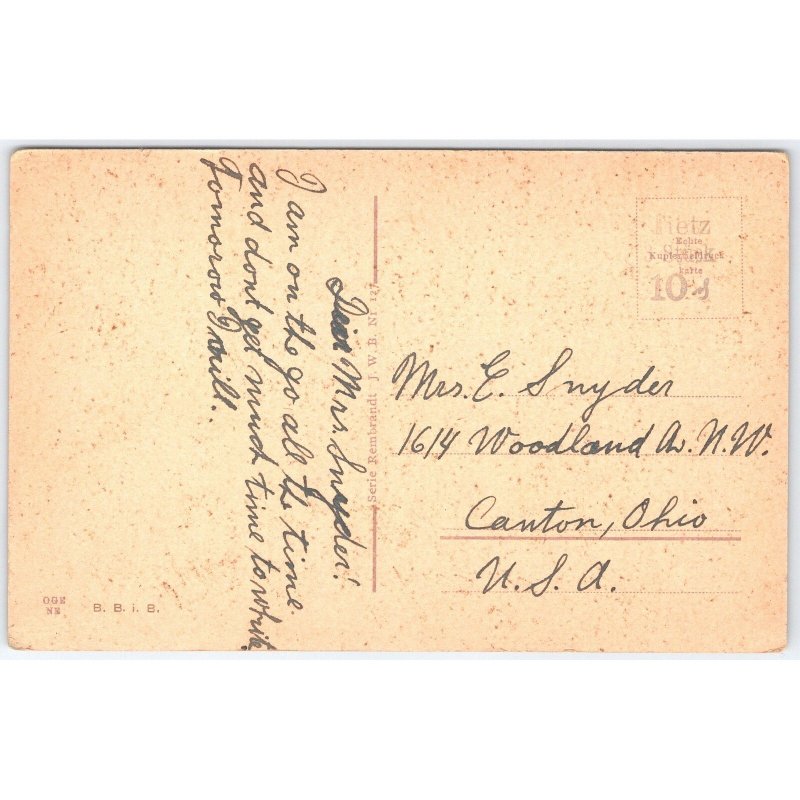 Dear Mrs. Snyder!
I am on the go all the time.
and dont get much time to white.
Tomorow I will.
Serie Rembrandt J. W. B. Nr
Echte
Kupfertiefdruck
karte
10
Mrs. E. Snyder
1614 Woodland Av. N.W.
Canton, Ohio
U. S. A.
OGE
NE
B. B. i. B.